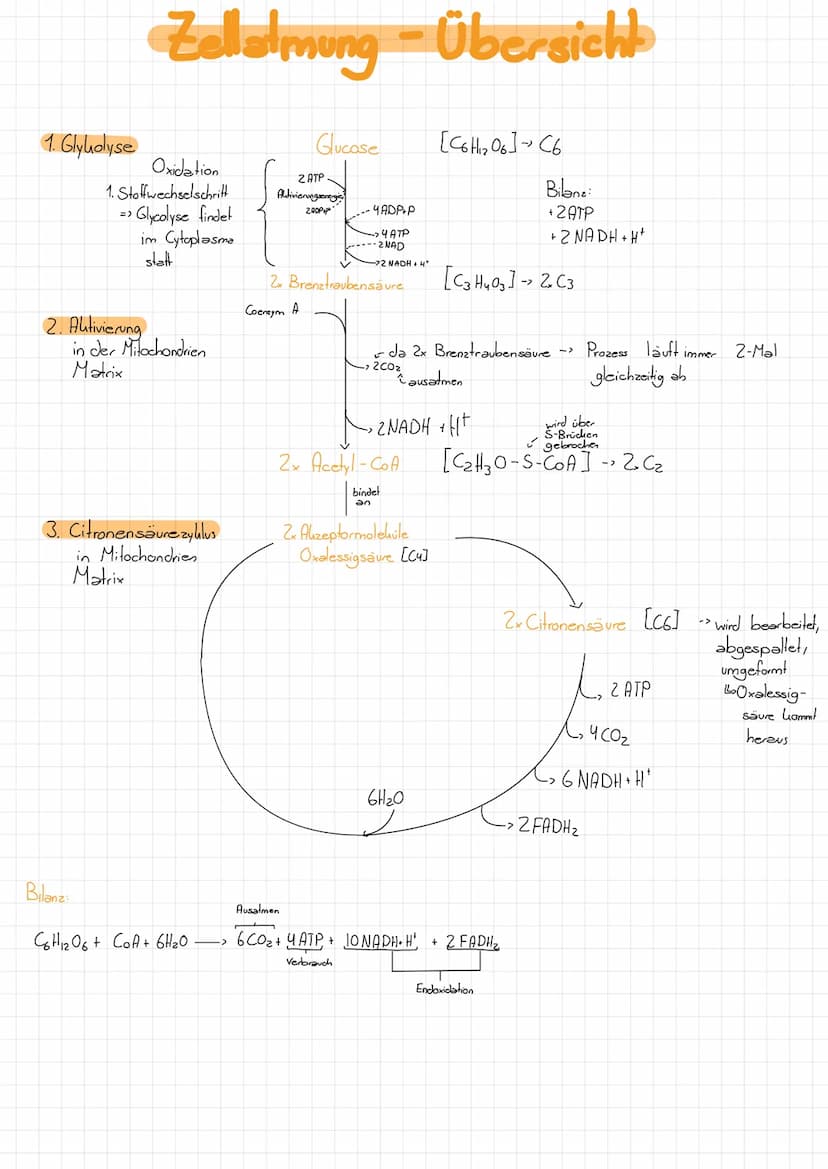 Zellatmung - Übersicht
1. Glykolyse
Glucose
[C6H12O6] -> C6
Oxidation
1. Stoffwechselschritt
=> Glycolyse findet
im Cytoplasma
statt
2 ATP
Aktivierungsenergie
2ADP+P
4ADP+P
4 ATP
2 NAD
2 NADH + H+
Bilanz:
+2 ATP
+2 NADH + H+
2x Brenztraubensäure
[C3H4O3] -> 2x C3
Coenzym A
2. Aktivierung
in der Mitochondrien
Matrix
2CO2
da 2x Brenztraubensäure -> Prozess läuft immer 2-Mal
gleichzeitig ab
ausatmen
2NADH + H+
wird über
S-Brücken
gebrochen
2x Acetyl-CoA
[C2H3O-S-CoA] -> 2x C2
bindet
an
3. Citronensäurezyklus
in Mitochondrien
Matrix
2x Akzeptormoleküle
Oxalessigsäure [C4]
2x Citronensäure [C6]
-> wird bearbeitet,
abgespaltet,
umgeformt
Oxalessig-
säure kommt
heraus
2 ATP
4CO2
6 NADH + H+
2 FADH2
6H2O
Bilanz:
Ausatmen
C6H12O6 + CoA + 6H2O -> 6CO2 + 4 ATP + 10NADH+H+ + 2 FADH2
Verbrauch
Endoxidation